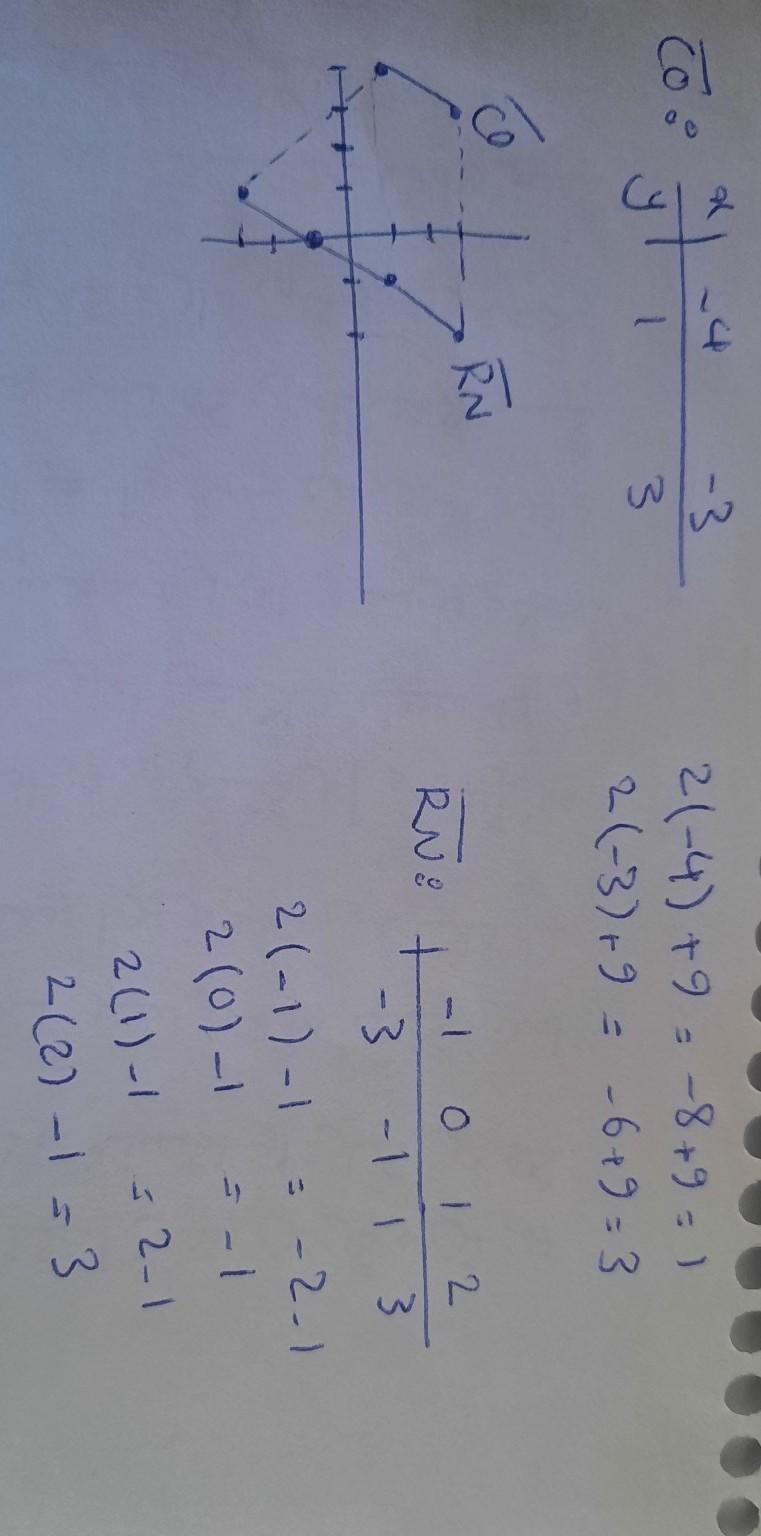 CO:
x | -4 -3
y | 1 3
2(-4)+9 = -8+9 = 1
2(-3)+9 = -6+9 = 3
CO
RN
RN:
-1 0 1 2
-3 -1 1 3
2(-1)-1 = -2-1
2(0)-1 = -1
2(1)-1 = 2-1
2(2)-1 = 3